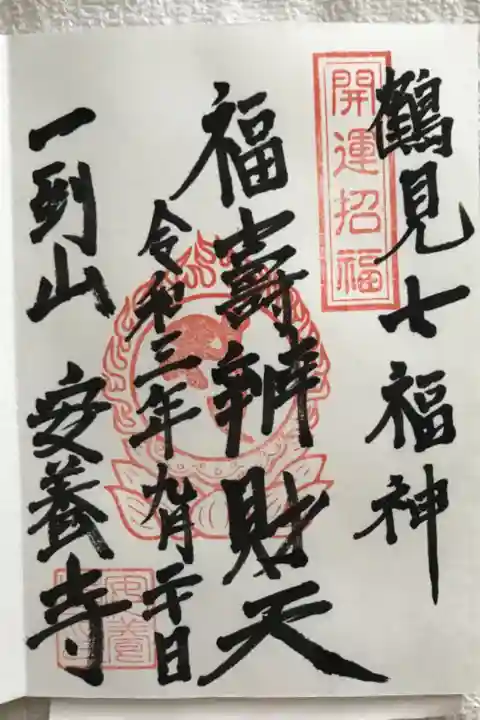 鶴見七福神
開運招福
福壽辨財天
令和三年九月二十日
一列山 安養寺
安養